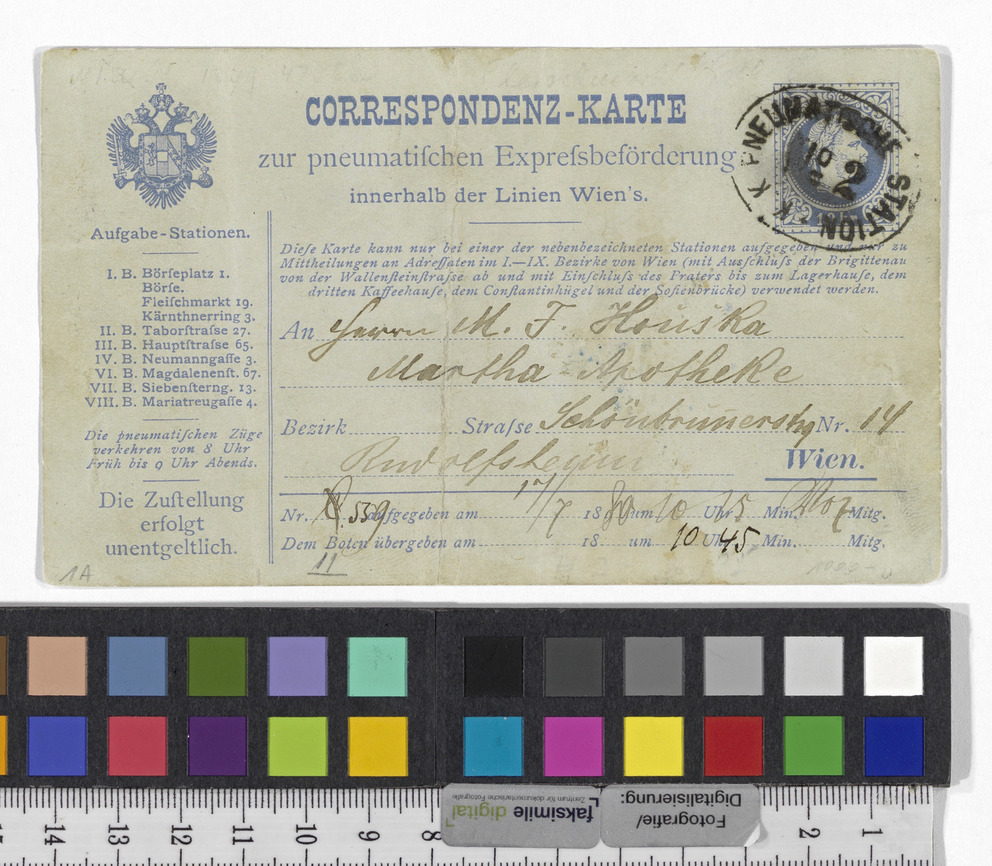 CORRESPONDENZ-KARTE
zur pneumatiſchen Expreſsbeförderung
innerhalb der Linien Wien's.
K. K. PNEUMATISCHE STATION
10
2
Aufgabe-Stationen.
I. B. Börſeplatz 1.
Börſe.
Fleiſchmarkt 19.
Kärnthnerring 3.
II. B. Taborſtraſse 27.
III. B. Hauptſtraſse 65.
IV. B. Neumanngaſſe 3.
VI. B. Magdalenenſt. 67.
VII. B. Siebenſterng. 13.
VIII. B. Mariatreugaſſe 4.
Die pneumatiſchen Züge
verkehren von 8 Uhr
Früh bis 9 Uhr Abends.
Die Zuſtellung
erfolgt
unentgeltlich.
Dieſe Karte kann nur bei einer der nebenbezeichneten Stationen aufgegeben und nur zu
Mittheilungen an Adreſſaten im I.—IX. Bezirke von Wien (mit Ausſchluſs der Brigittenau
von der Wallenſteinſtraſse ab und mit Einſchluſs des Praters bis zum Lagerhauſe, dem
dritten Kaffeehauſe, dem Conſtantinhügel und der Sofienbrücke) verwendet werden.
An Herrn M. F. Houska
Martha Apotheke
Bezirk Straſse Schönbrunnerstrg Nr. 14
Rudolfsheim Wien.
Nr. 559 aufgegeben am 17/7 1880 um 10 Uhr 5 Min. Mitg.
Dem Boten übergeben am 18 um 10 Uhr 45 Min. Mitg.
11
1A
15 14 13 12 11 10 9 8 2 1
faksimile digital
Zentrum für dokumentarische Fotografie
Fotografie/
Digitalisierung: